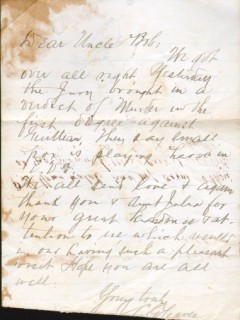 Dear Uncle Bob;
We got
over all right Yesterday
the Jury brought in a
verdict of Murder in the
first Degree against
They say Small
Pox is playing havoc in
We all send love & again
thank you & Aunt Julia for
your great kindness & at-
tention to us which results
in our having such a pleasant
visit Hope you are all
well.
Yours truly